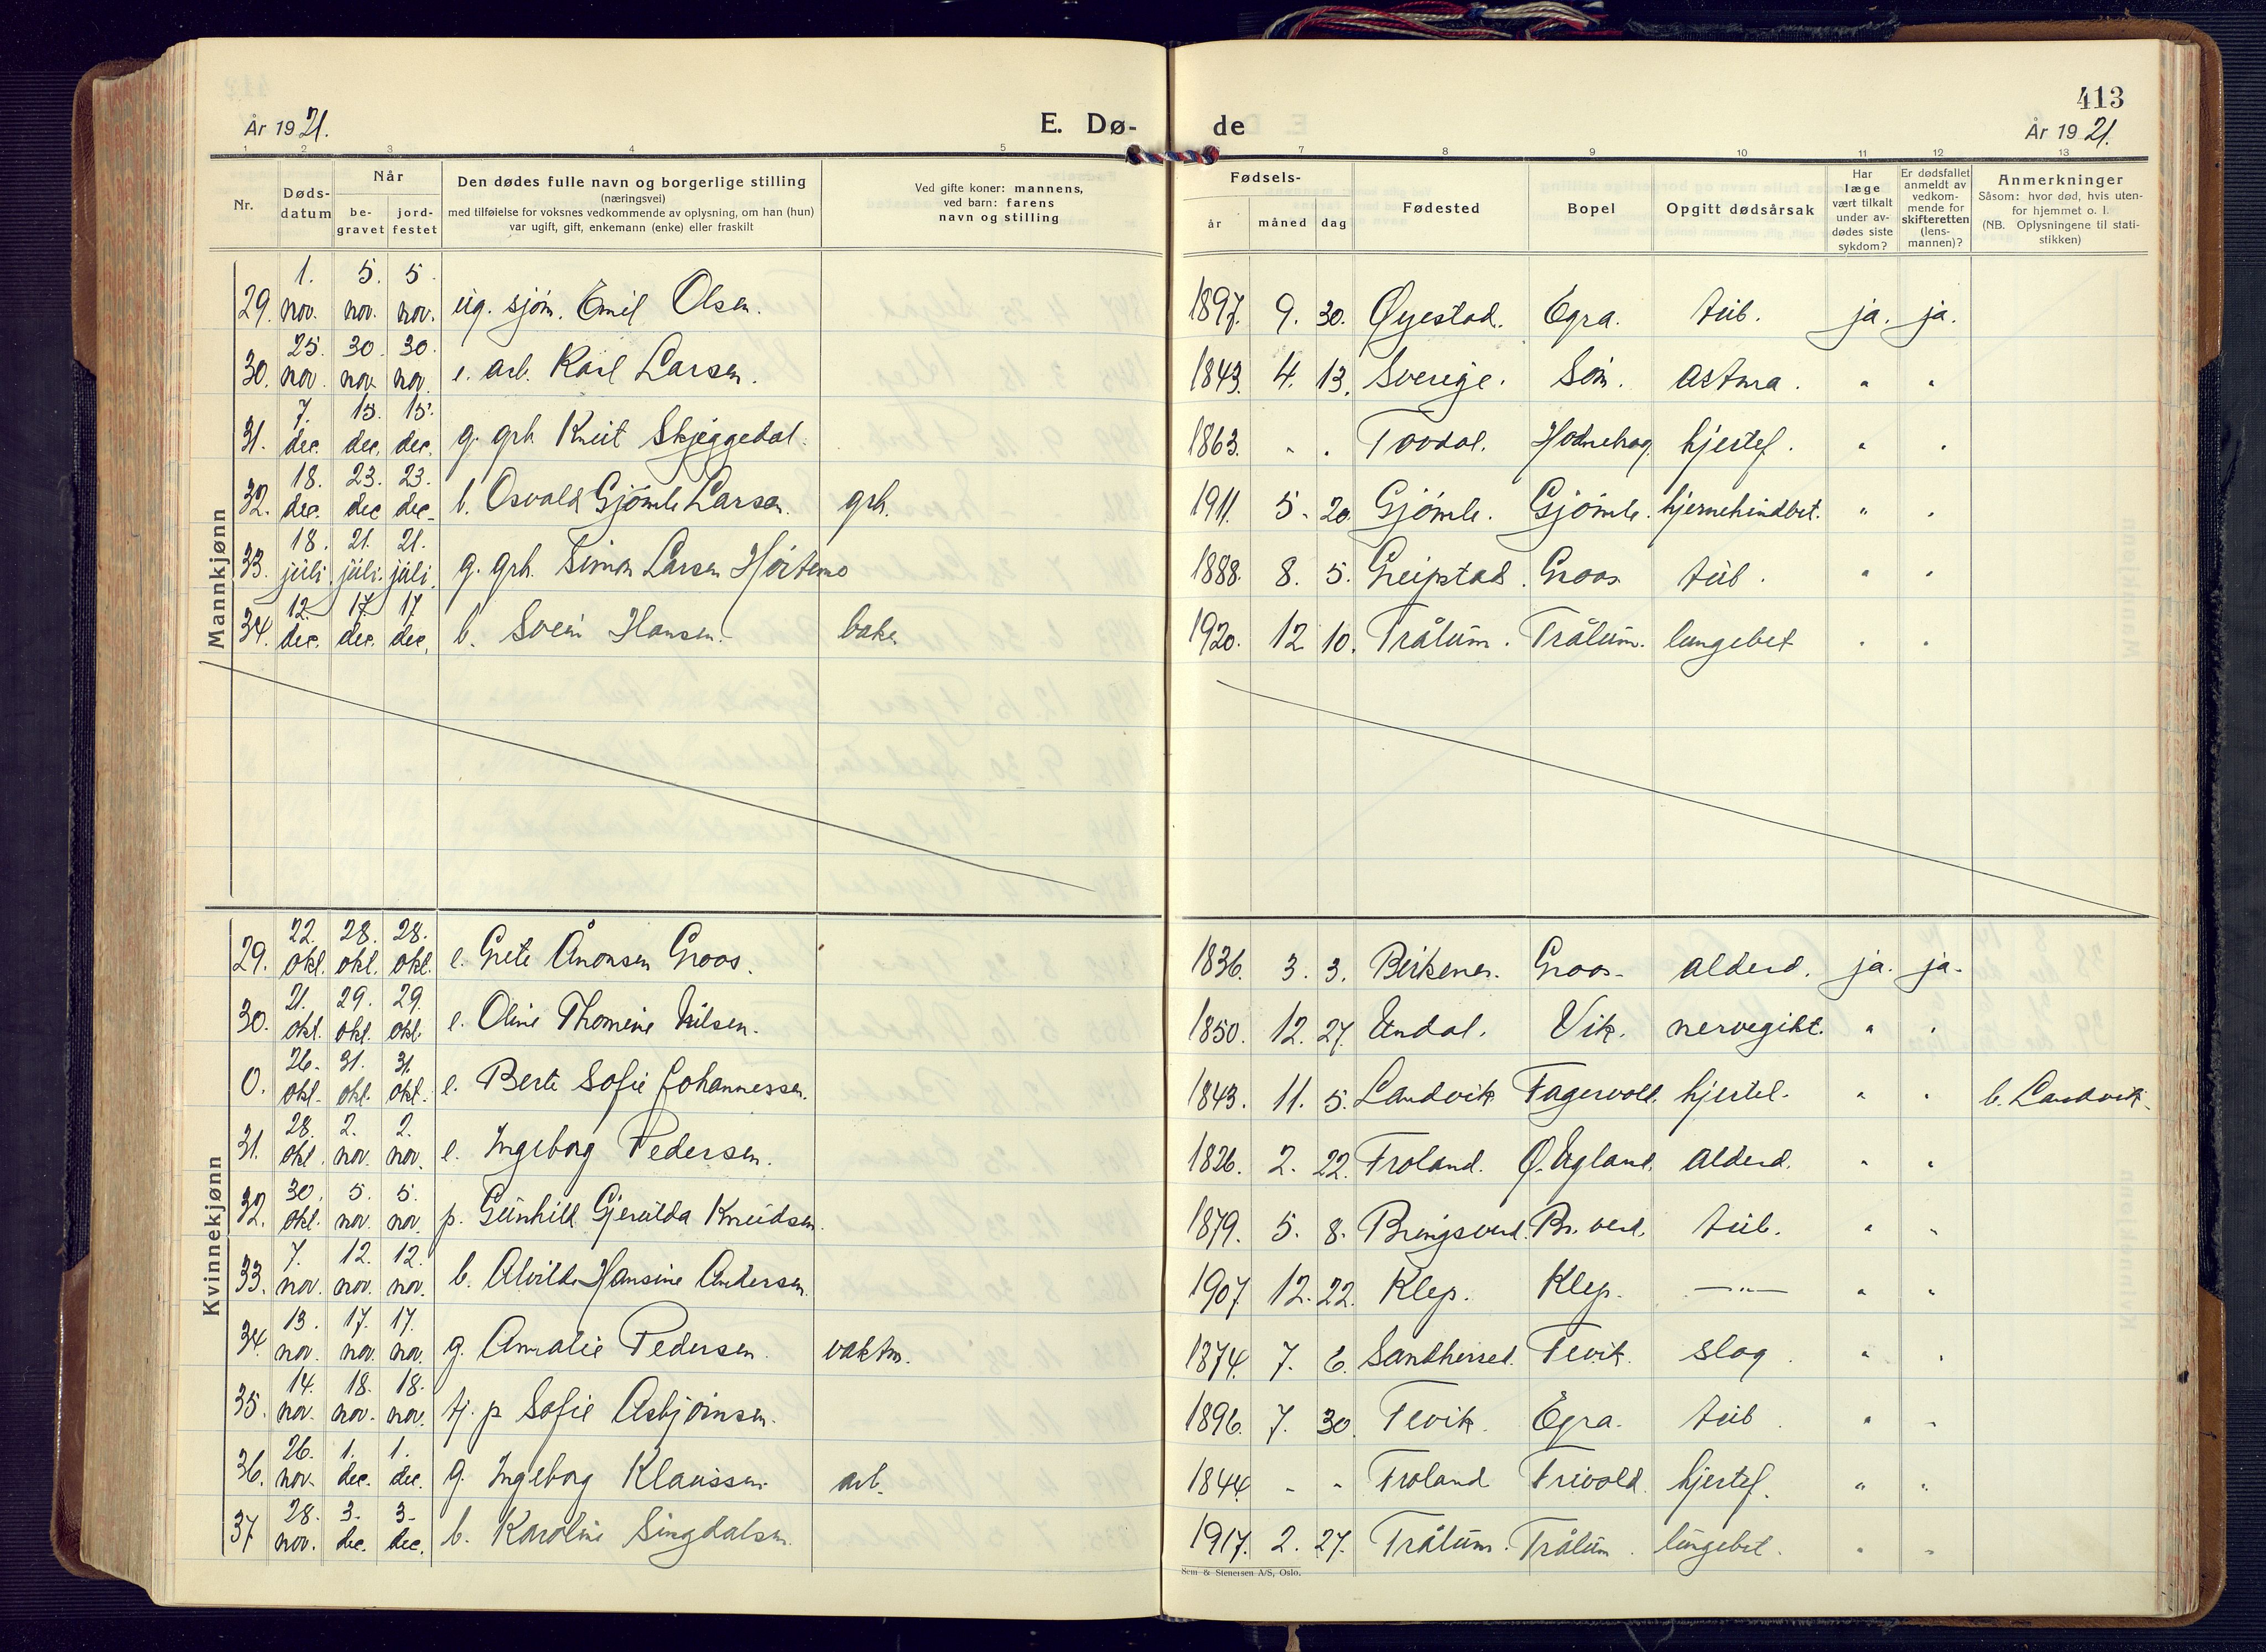 413
År 1921.
E. Dø-
de
År 1921.
1 2 3 4 5 6 7 8 9 10 11 12 13
Nr.
Døds-
datum
Når
be-
gravet
jord-
festet
Den dødes fulle navn og borgerlige stilling
(næringsvei)
med tilføielse for voksnes vedkommende av oplysning, om han (hun)
var ugift, gift, enkemann (enke) eller fraskilt
Ved gifte koner: mannens,
ved barn: farens
navn og stilling
Fødsels-
år måned dag
Fødested
Bopel
Opgitt dødsårsak
Har
læge
vært tilkalt
under av-
dødes siste
sykdom?
Er dødsfallet
anmeldt av
vedkom-
mende for
skifteretten
(lens-
mannen)?
Anmerkninger
Såsom: hvor død, hvis uten-
for hjemmet o. l.
(NB. Oplysningene til stati-
stikken)
Mannkjønn
29. 1. nov. 5. nov. 5. nov. ug. sjøm. Emil Olsen. 1897. 9. 30. Øyestad. Egra. tub. ja. ja.
30. 25. nov. 30. nov. 30. nov. e. arb. Karl Larsen. 1843. 4. 13. Sverige. Søm. astma. " "
31. 7. dec. 15. dec. 15. dec. g. grb. Knut Skjeggedal. 1863. - . Tovdal. hjertef. " "
32. 18. dec. 23. dec 23. dec. b. Osvald Gjømle Larsen. grb. 1911. 5. 20. Gjømle. Gjømle. hjernehindbet. " "
33. 18. juli 21. juli. 21. juli. g. grb. Simon Larsen Hørtemo 1888. 8. 5. Greipstad. Groos. tub. " "
34. 12. dec. 17. dec. 17. dec. b. Svein Hansen. baker 1920. 12 10. Trålum. Trålum. lungebet " "
Kvinnekjønn
29. 22. okt. 28. okt. 28. okt. e. Grete Ånonsen Groos. 1836. 3. 3. Birkenes. Groos. alderd. ja. ja.
30. 21. okt. 29. okt. 29. okt. e. Oline Thomine Nilsen. 1850. 12. 27. Undal. Vik. nervegikt. " "
0. 26. okt. 31. okt. 31. okt. e. Berte Sofie Johannessen. 1843. 11. 5. Landvik Fagervold. hjertel. " " b. Landvik.
31. 28. okt. 2. nov. 2. nov. e. Ingeborg Pedersen. 1826. 2. 22. Froland. Ø. Ugland. alderd. " "
32. 30. okt. 5. nov. 5. nov. p. Gunhild Gjerulda Knudsen. 1879. 5. 8. Bringsverd. Br. verd. tub. " "
33. 7. nov. 12. nov. 12. nov. b. Alvilde Hansine Andersen. 1907. 12. 22. Klep. Klep. —"— " "
34. 13. nov. 17. nov. 17. nov. g. Amalie Pedersen. vaktm. 1874. 7. 6. Fevik. slag. " "
35. 14. nov. 18. nov. 18. nov. tj. p. Sofie Asbjørnsen. 1896. 7. 30. Fevik. Egra. tub. " "
36. 26. nov. 1. dec. 1. dec. g. Ingeborg Klaussen. arb. 1844. - - Froland Frivold. hjertef. " "
37 28. nov. 3. dec. 3. dec. b. Karoline Singdalsen. 1917. 2. 27. Trålum. Trålum. lungebet. " "
Sem & Stenersen A/S, Oslo.